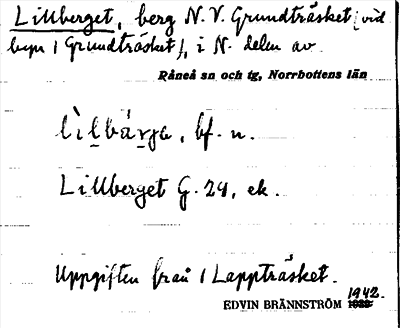 Lillberget, berg N.V. Grundträsket (vid
byn 1 Grundträsket), i N. delen av
Råneå sn och tg, Norrbottens län
lìlbärje, bf. n.
Lillberget G. 24, ek.
Uppgiften från 1 Lappträsket.
EDVIN BRÄNNSTRÖM 1942.